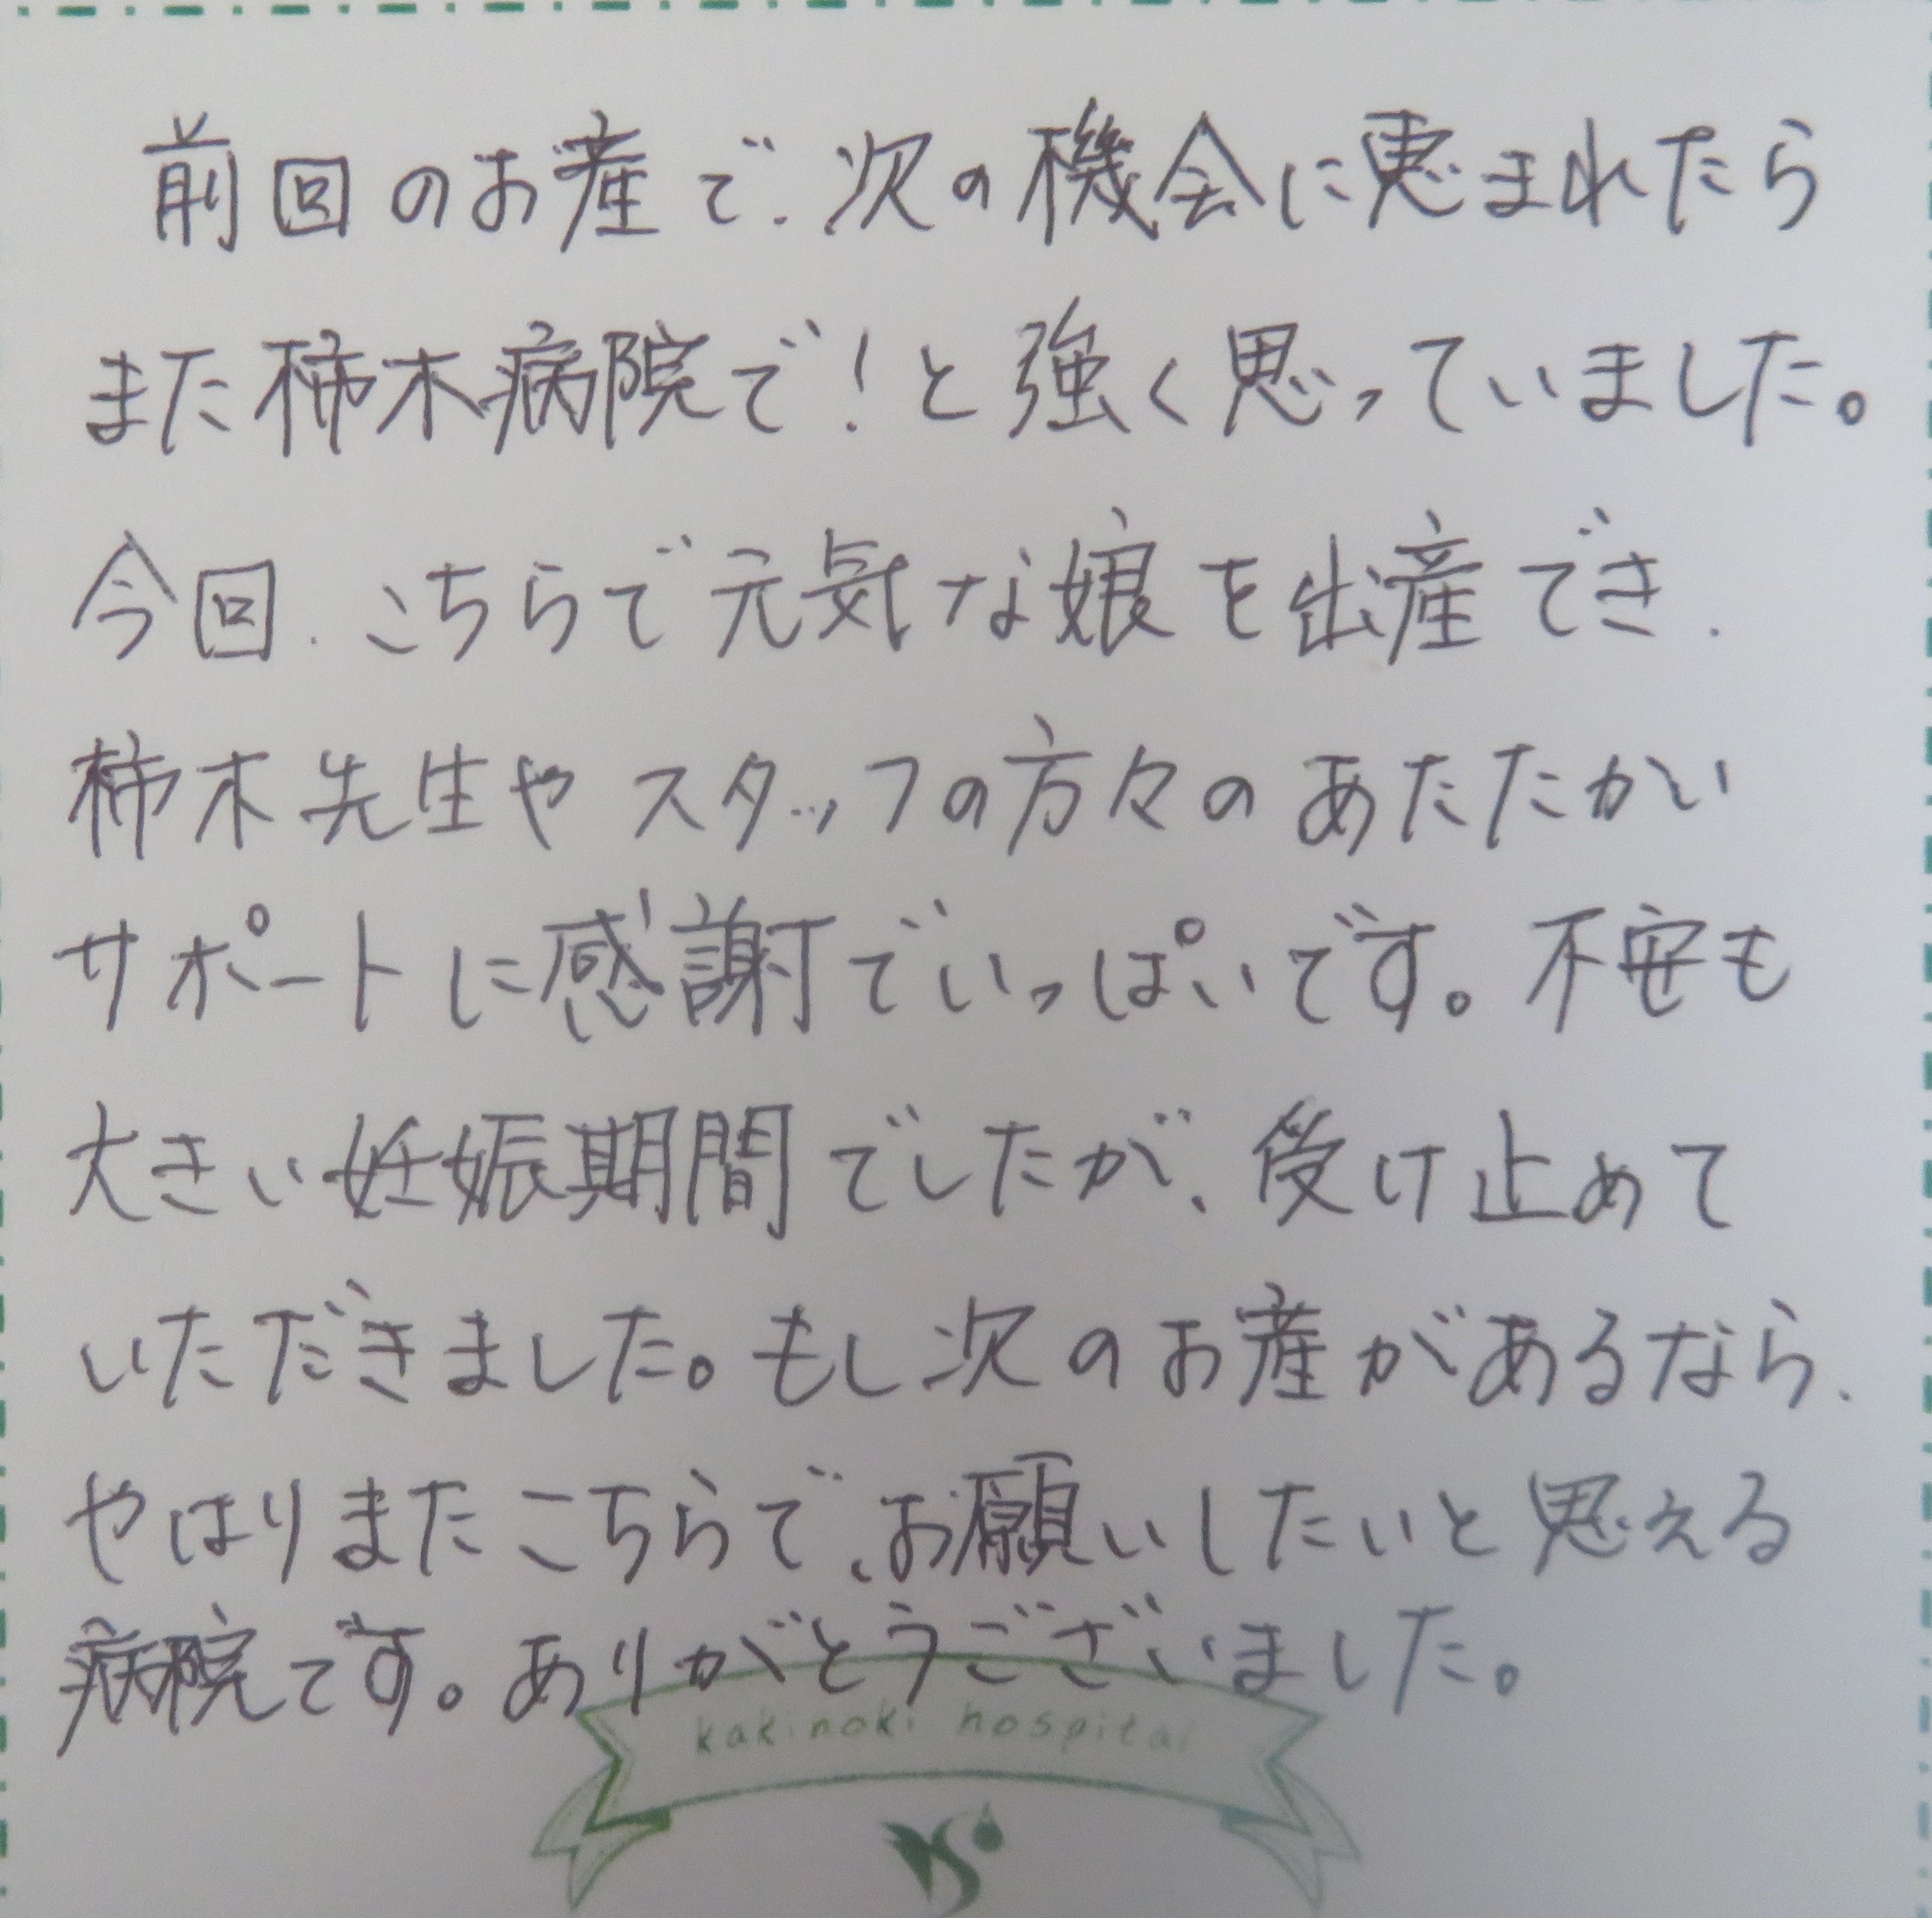 前回のお産で、次の機会に恵まれたら
また柿木病院で！と強く思っていました。
今回、こちらで元気な娘を出産でき、
柿木先生やスタッフの方々のあたたかい
サポートに感謝でいっぱいです。不安も
大きい妊娠期間でしたが、受け止めて
いただきました。もし次のお産があるなら、
やはりまたこちらで、お願いしたいと思える
病院です。ありがとうございました。
kakinoki hospital